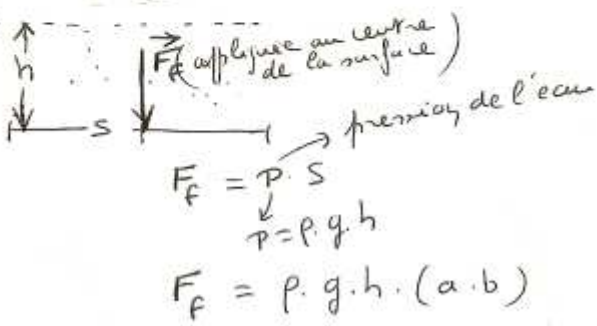 h
F_f (appliquée au centre
de la surface)
S
pression de l'eau
F_f = P. S
P = ρ.g.h
F_f = ρ.g.h.(a.b)